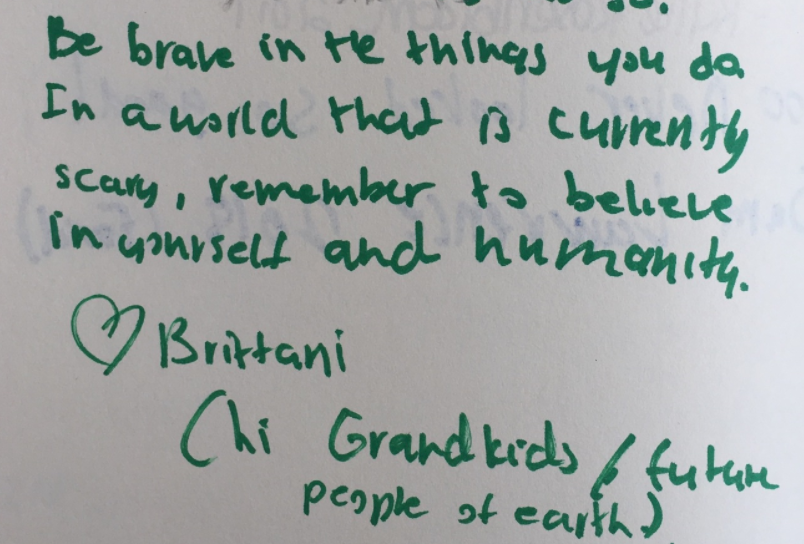 Be brave in the things you do
In a world that is currently
scary, remember to believe
in yourself and humanity.
♡ Brittani
(hi Grandkids / future
people of earth)